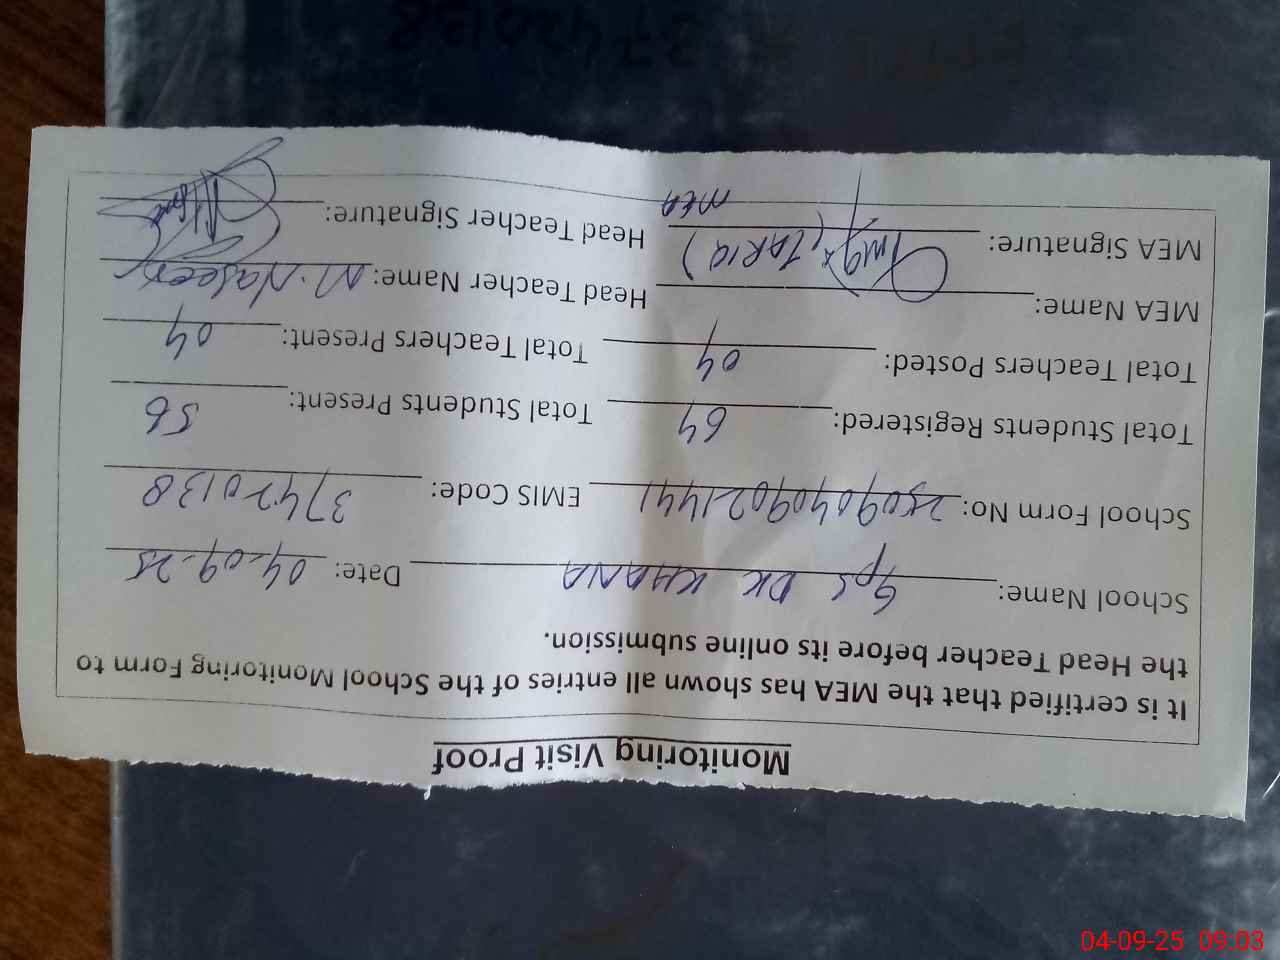 EMIS - 37420138
Monitoring Visit Proof
It is certified that the MEA has shown all entries of the School Monitoring Form to
the Head Teacher before its online submission.
School Name: GpS DK KHANA Date: 04-09-25
School Form No: 25090409021441 EMIS Code: 37420138
Total Students Registered: 64 Total Students Present: 56
Total Teachers Posted: 04 Total Teachers Present: 04
MEA Name: (TARIQ) Head Teacher Name: M. Naseer
MEA Signature: MEA Head Teacher Signature:
04-09-25 09:03